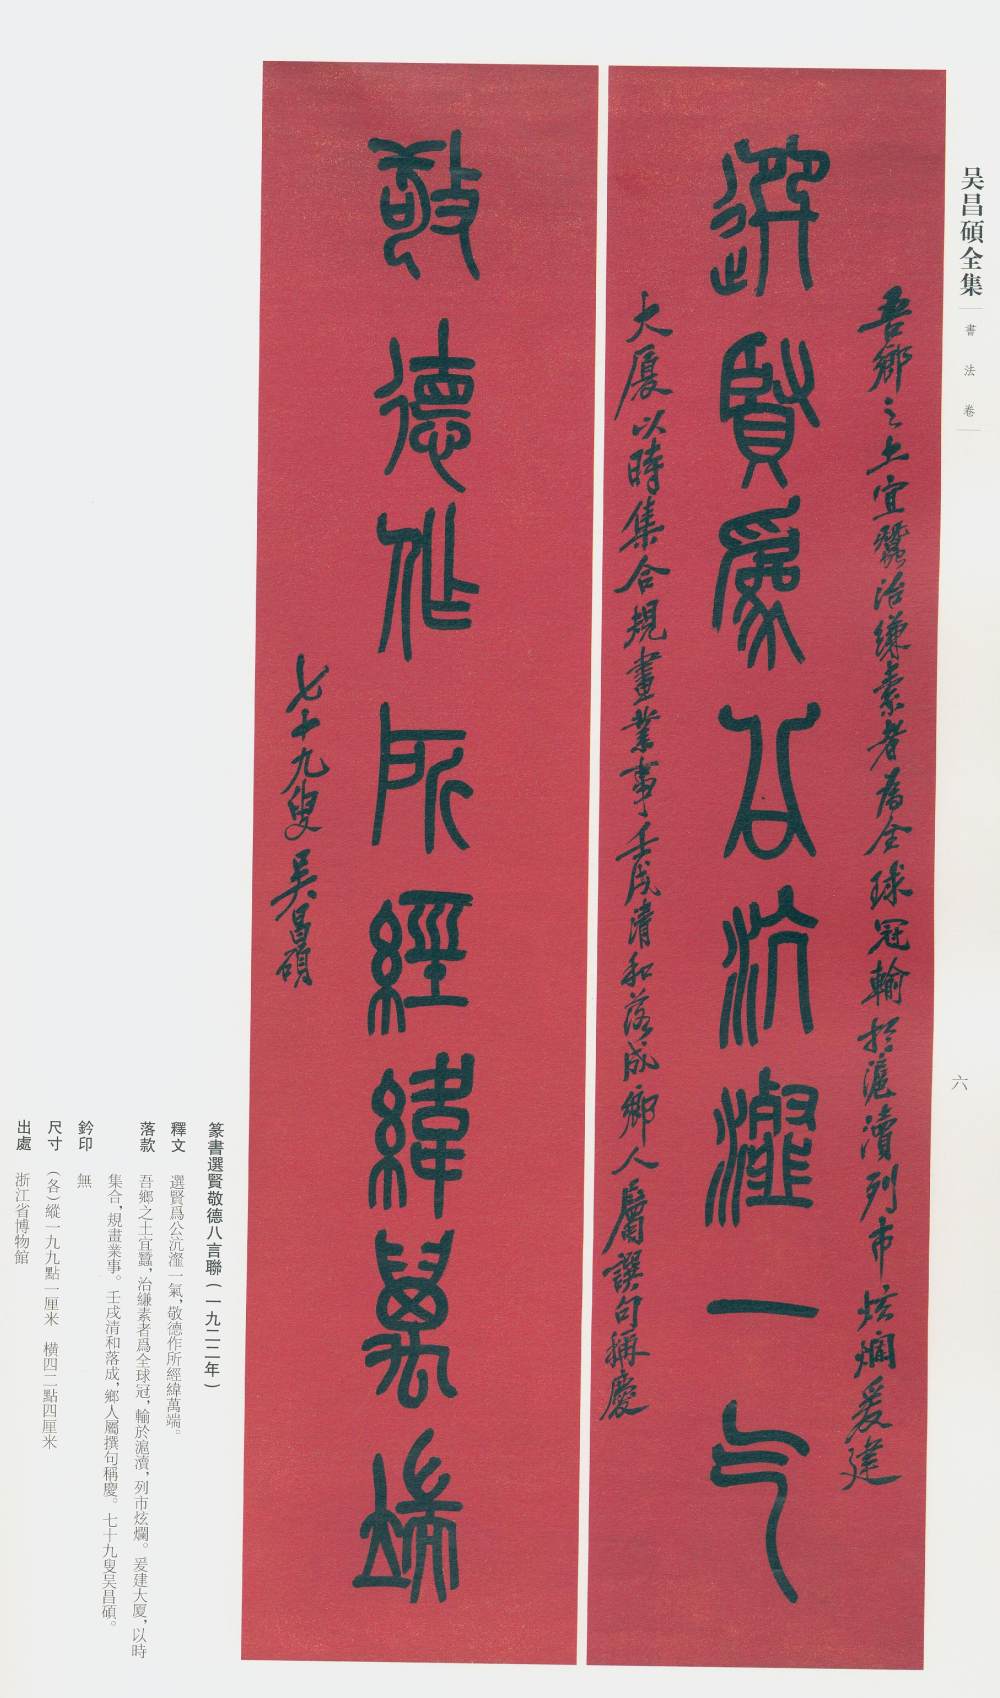 吴昌碩全集
書法卷
六
吾鄉之土宜蠶治縑素者為全球冠輸於滬瀆列市炫爛爰建
選賢爲公沆瀣一气
大厦以時集合規畫業事壬戌清和落成鄉人屬譔句稱慶
敬德作所經緯萬端
七十九叟吴昌碩
篆書選賢敬德八言聯(一九二二年)
釋文 選賢爲公沆瀣一氣,敬德作所經緯萬端。
落款 吾鄉之土宜蠶,治縑素者爲全球冠,輸於滬瀆,列市炫爛。爰建大厦,以時
集合,規畫業事。壬戌清和落成,鄉人屬撰句稱慶。七十九叟吴昌碩。
鈐印 無
尺寸 (各)縱一九九點一厘米 橫四二點四厘米
出處 浙江省博物館